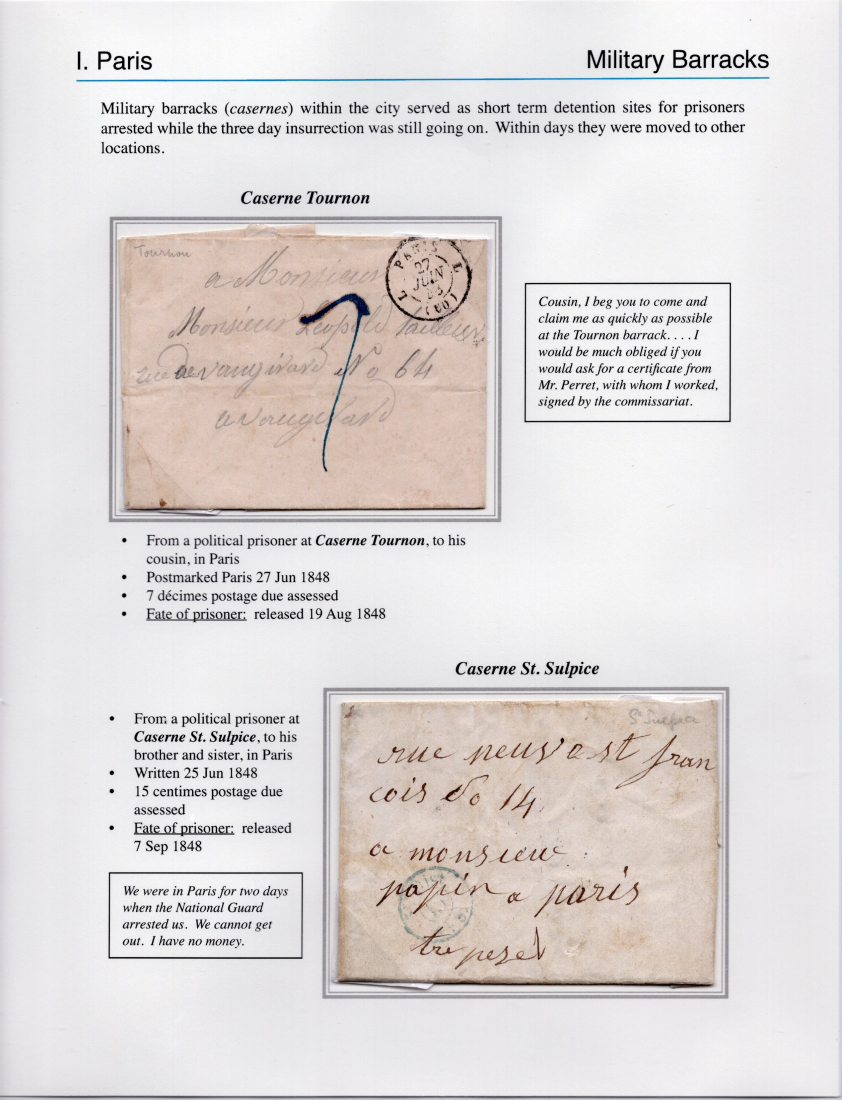 I. Paris
Military Barracks
Military barracks (casernes) within the city served as short term detention sites for prisoners
arrested while the three day insurrection was still going on. Within days they were moved to other
locations.
Caserne Tournon
Tournon
PARIS
L L
27
JUIN
(60)
a Monsieur
Monsieur Leopold Tailleur
rue de vaugirard No 64
a vaugirard
7
Cousin, I beg you to come and
claim me as quickly as possible
at the Tournon barrack. . . . I
would be much obliged if you
would ask for a certificate from
Mr. Perret, with whom I worked,
signed by the commissariat.
• From a political prisoner at Caserne Tournon, to his
cousin, in Paris
• Postmarked Paris 27 Jun 1848
• 7 décimes postage due assessed
• Fate of prisoner: released 19 Aug 1848
Caserne St. Sulpice
• From a political prisoner at
Caserne St. Sulpice, to his
brother and sister, in Paris
• Written 25 Jun 1848
• 15 centimes postage due
assessed
• Fate of prisoner: released
7 Sep 1848
We were in Paris for two days
when the National Guard
arrested us. We cannot get
out. I have no money.
St Sulpice
rue neuve st fran
cois No 14
a monsieur
papin a paris